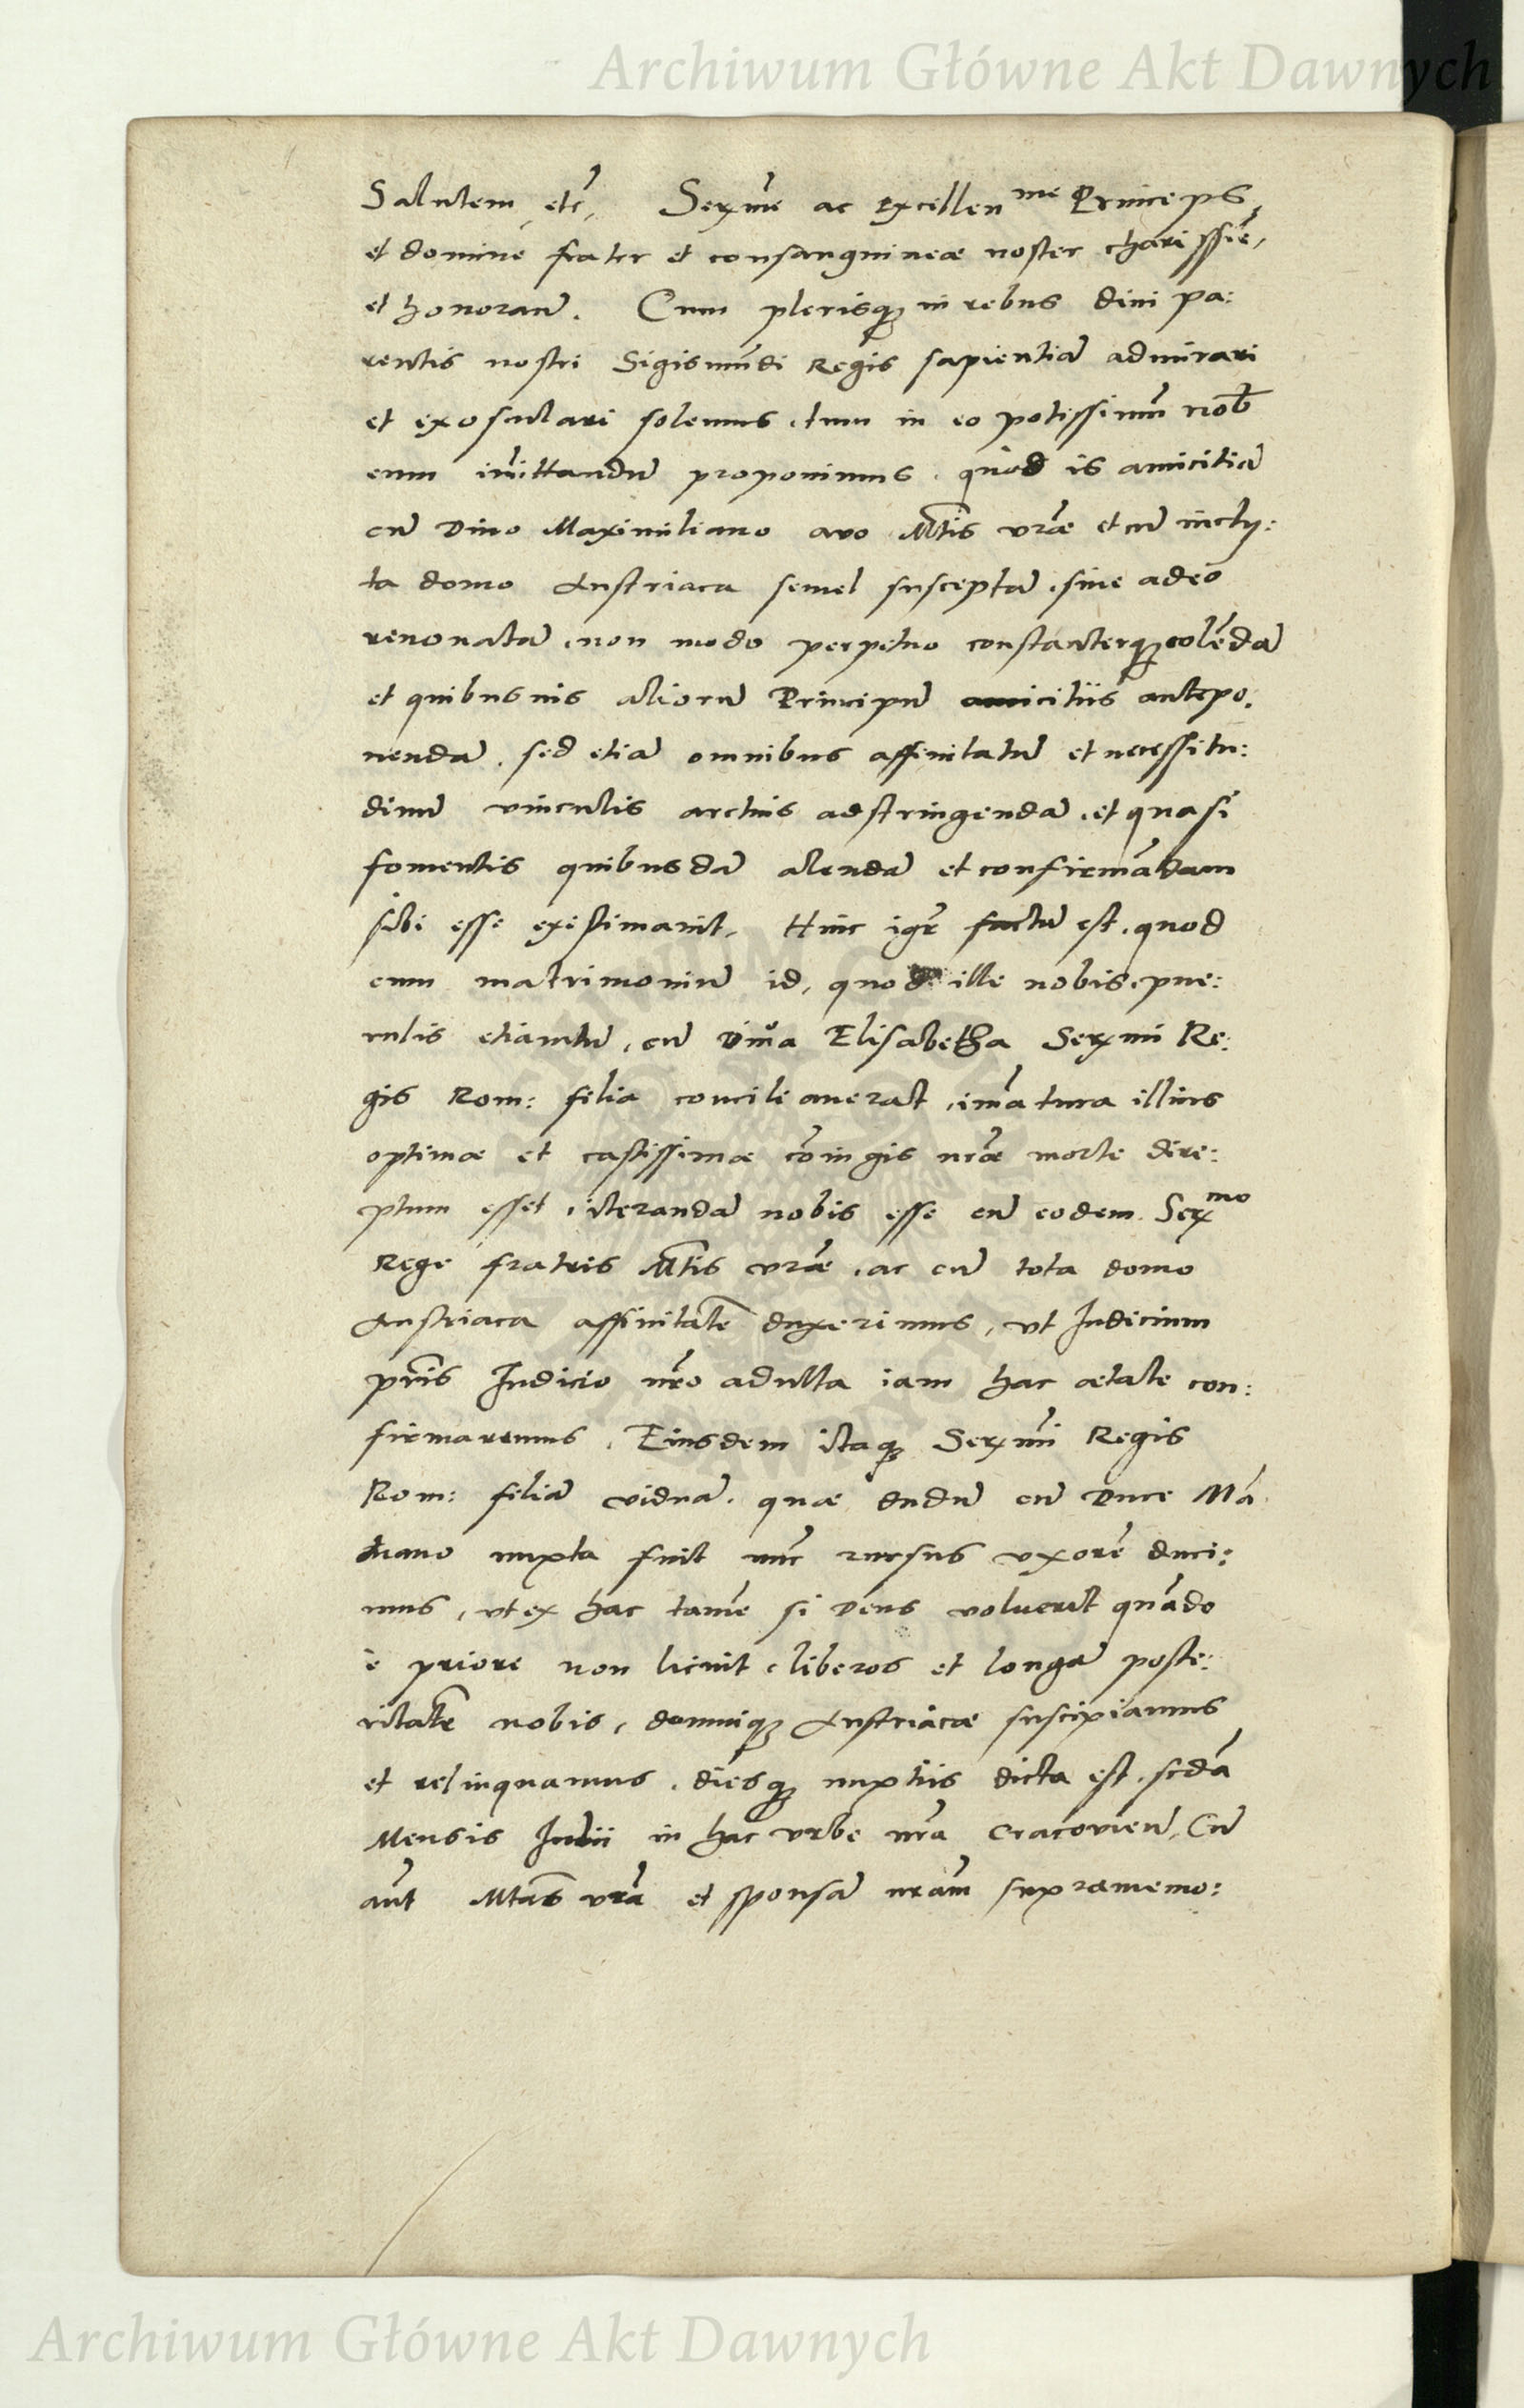 Archiwum Główne Akt Dawnych
Salutem etc̃, Serme ac Excellenme Princeps,
et domine frater et consanguineæ noster charissie͂,
et honoran͂. Cum plerisq; in rebus divi pa:
rentis nostri Sigismu͂di Regis sapientia͂ admirari
et exosculari solemus, tum in eo potissimu͂ nob͂
eum imittandu͂ proponimus, quod is amicitia͂
cu͂ Divo Maximiliano avo Mtis vr͂æ et cu͂ incly:
ta domo Austriaca semel suscepta͂, sive adeo
renovata͂, non modo perpetuo constanterq; cole͂da͂
et quibusvis alioru͂ Principu͂ amicitiis antepo:
nenda͂, sed etia͂ omnibus affinitatu͂ et necessitu:
dinu͂ vinculis arctius adstringenda͂, et quasi
fomentis quibusda͂ alenda͂ et confirma͂dam
sibi esse existimavit, Hinc igr͂ factu͂ est, quod
cum matrimoniu͂ id, quod ille nobis, pue:
rulis etiamtu͂, cu͂ Diva Elisabetha Sermi Re:
gis Rom: filia conciliaverat, im͂atura illius
optimæ et castissimæ co͂iugis nr͂æ morte dire:
ptum esset, iteranda͂ nobis esse cu͂ eodem Sermo
Rege fratris Mtis vr͂æ, ac cu͂ tota domo
Austriaca affinitate͂ duxerimus, ut Iudicium
pr͂is Iudicio nr͂o adulta iam hac ætate con:
firmaremus, Eiusdem itaq; Sermi Regis
Rom: filia͂ vidua͂, quæ dudu͂ cu͂ Duce Ma͂
tuano nupta fuit nu͂c rursus uxore͂ duci:
mus, ut ex hac tame͂ si Deus voluerit qua͂do
è priore non licuit, liberos et longa͂ poste:
ritate͂ nobis, domuiq; Austriacæ suscipiamus
et relinquamus, diesq; nuptiis dicta est, scda͂
Mensis Iulii in hac urbe nr͂a Cracovien͂, Cu͂
au͂t Mtas vr͂a et sponsa͂ nr͂am supramemo:
Archiwum Główne Akt Dawnych